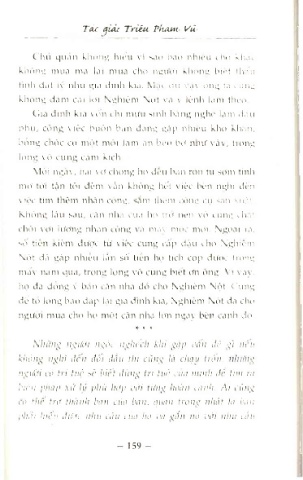 Tác giả: Triệu Phạm Vũ
Chủ quán không hiểu vì sao bao nhiêu chỗ khác
không mua mà lại mua cho người không biết thẩm
định đất rẻ như gia đình kia. Mặc dù vậy ông ta cũng
không dám cãi lời Nghiêm Nót và y lệnh làm theo.
Gia đình kia vốn chỉ mưu sinh bằng nghề làm đậu
phụ, công việc buôn bán đang gặp nhiều khó khăn,
bỗng chốc có một mối làm ăn béo bở như vậy, trong
lòng vô cùng cảm kích.
Mỗi ngày, hai vợ chồng họ đều bận rộn từ sớm tinh
mơ tới tận tối đêm vẫn không hết việc bèn nghĩ đến
việc tìm thêm nhân công, sắm thêm công cụ sản xuất.
Không lâu sau, căn nhà của họ trở nên vô cùng chật
chội với lượng nhân công và máy móc mới. Ngoài ra,
số tiền kiếm được từ việc cung cấp đậu cho Nghiêm
Nót đã gấp nhiều lần số tiền họ tích cóp được trong
mấy năm qua, trong lòng vô cùng biết ơn ông. Vì vậy
họ đã đồng ý bán căn nhà đó cho Nghiêm Nót. Cũng
để tỏ lòng báo đáp lại gia đình kia, Nghiêm Nót đã cho
người mua cho họ một căn nhà lớn ngay bên cạnh đó.
* * *
Những người ngốc nghếch khi gặp vấn đề gì nếu
không nghĩ đến đối đầu thì cũng là chạy trốn, những
người có trí tuệ sẽ biết dùng trí tuệ của mình để tìm ra
biện pháp xử lý phù hợp với từng hoàn cảnh. Ai cũng
có thể trở thành bạn của bạn, quan trọng nhất là bạn
phải hiểu được nhu cầu của họ và gắn nó với nhu cầu
– 159 –